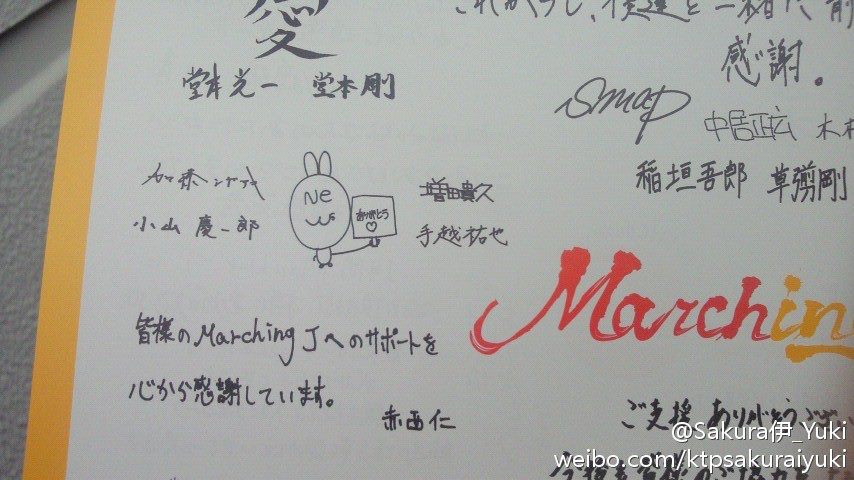 愛
堂本光一 堂本剛
これからも、僕達と一緒に前
感謝。
SMAP
中居正広 木村
稲垣吾郎 草彅剛
加藤シゲアキ
小山慶一郎
NewS
ありがとう
増田貴久
手越祐也
Marchin
皆様のMarching Jへのサポートを
心から感謝しています。
赤西仁
ご支援ありがとうござい
@Sakura伊_Yuki
weibo.com/ktpsakuraiyuki